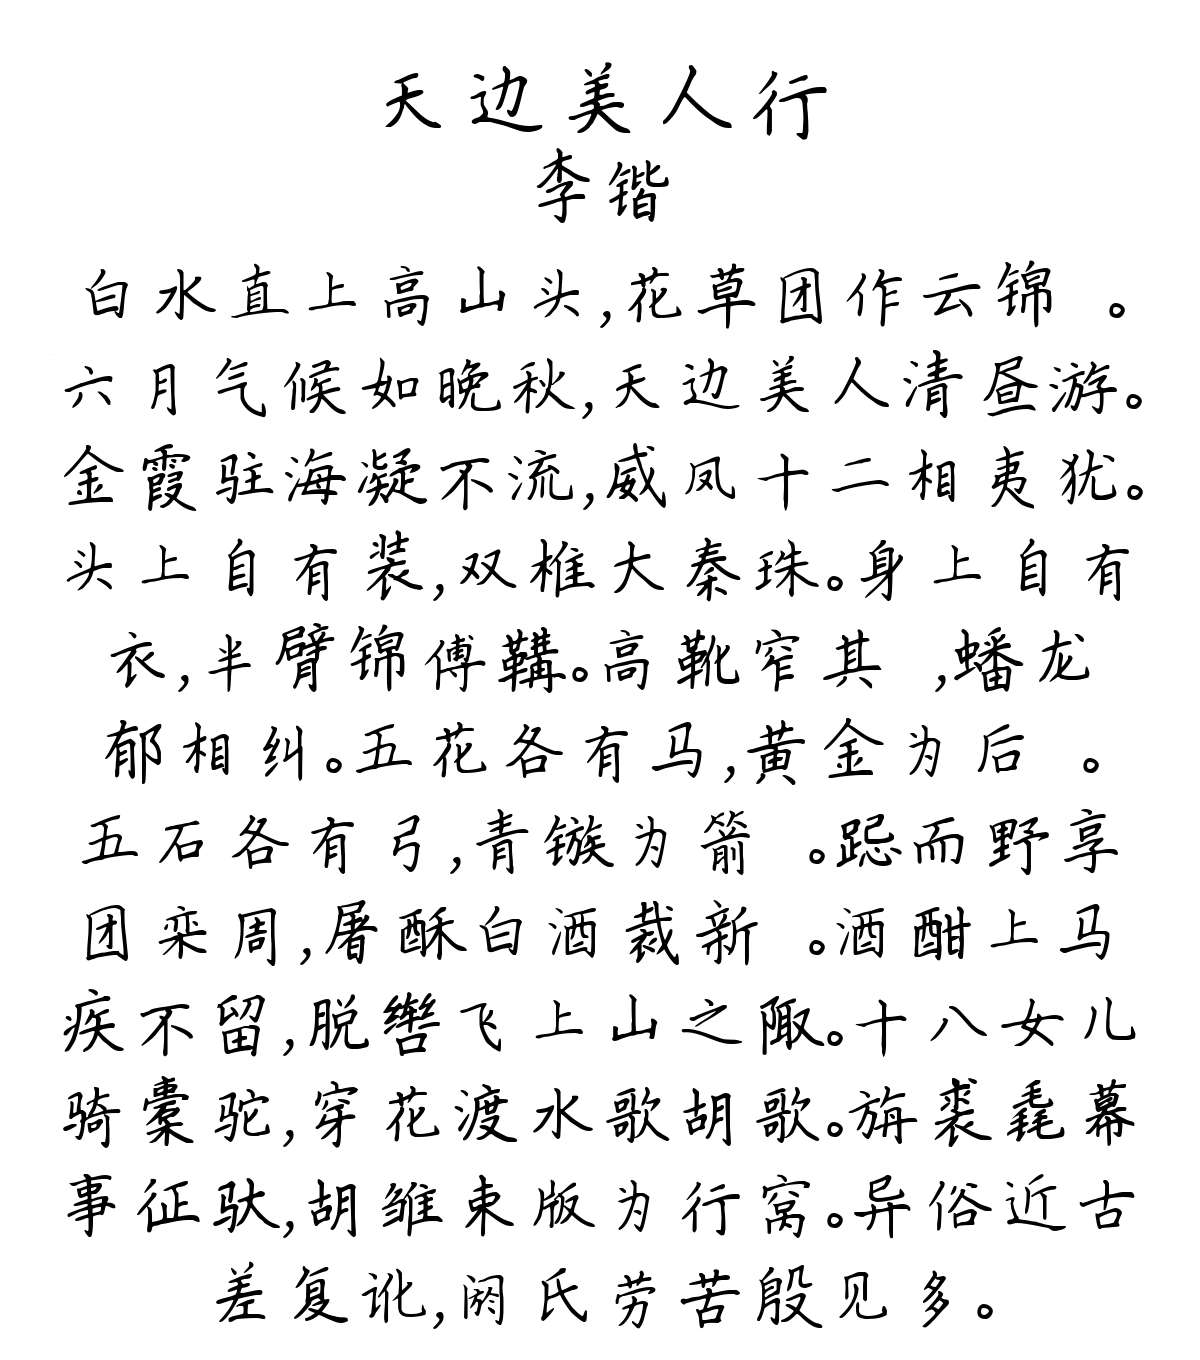 天边美人行
李锴
白水直上高山头,花草团作云锦 。
六月气候如晚秋,天边美人清昼游。
金霞驻海凝不流,威凤十二相夷犹。
头上自有装,双椎大秦珠。身上自有
衣,半臂锦傅鞲。高靴窄其 ,蟠龙
郁相纠。五花各有马,黄金为后 。
五石各有弓,青镞为箭 。跽而野享
团栾周,屠酥白酒裁新 。酒酣上马
疾不留,脱辔飞上山之陬。十八女儿
骑橐驼,穿花渡水歌胡歌。旃裘毳幕
事征驮,胡雏束版为行窝。异俗近古
差复讹,阏氏劳苦殷见多。